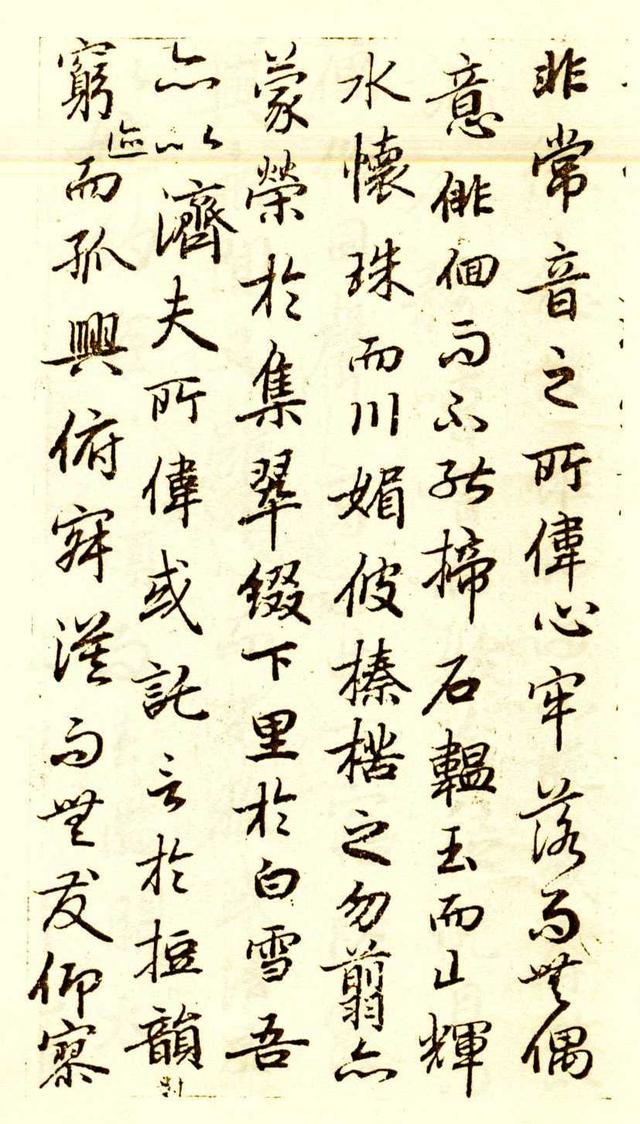 非常音之所偉心牢落而無偶
意俳佪而不能揥石韞玉而山輝
水懷珠而川媚彼榛楛之勿翦亦
蒙榮於集翠綴下里於白雪吾
亦以濟夫所偉或託言於短韻對
窮迹而孤興俯寂漠而無友仰寥